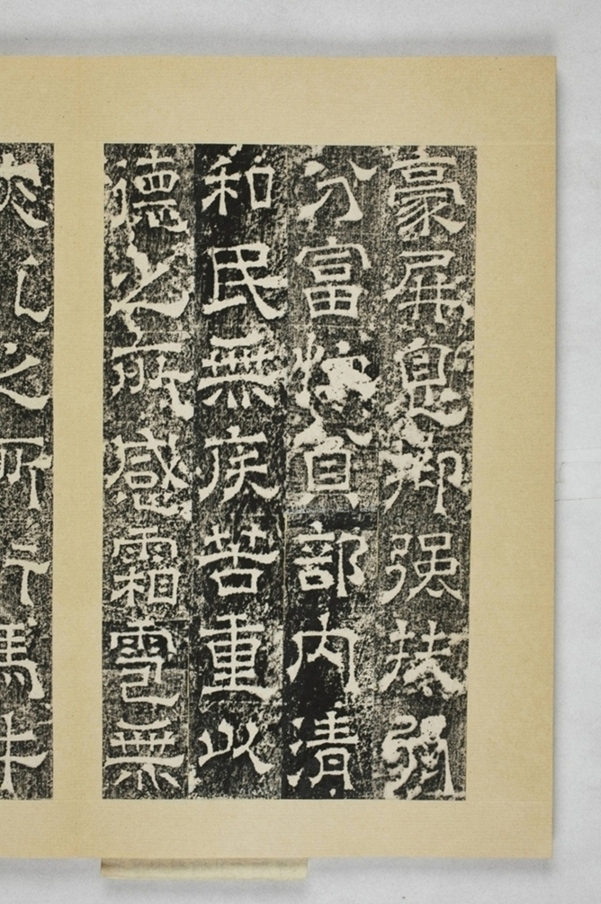 豪屏息抑强扶弱
分富貧部内清
和民無疾苦重以
德之所感霜雹無
之所行